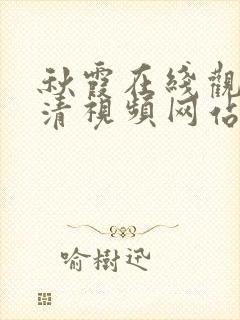 秋霞在綫觀
清視頻网佔
喻樹迅